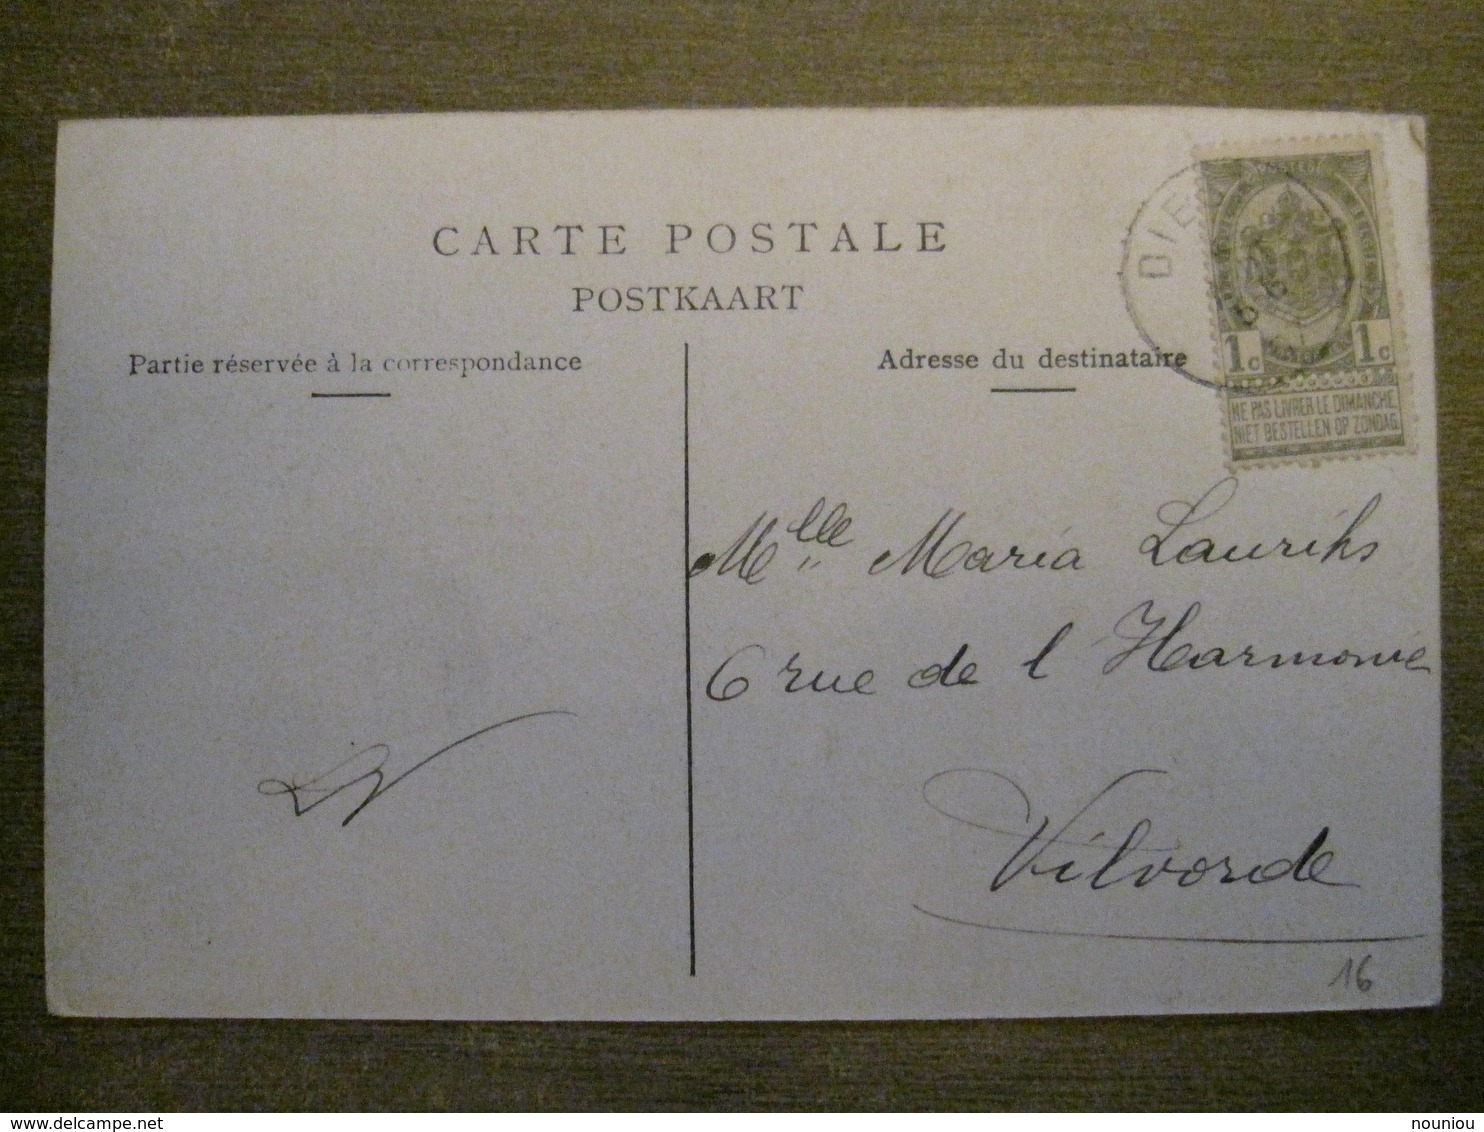 CARTE POSTALE
POSTKAART
Partie réservée à la correspondance
Adresse du destinataire
1c 1c
NE PAS LIVRER LE DIMANCHE
NIET BESTELLEN OP ZONDAG
Mlle Maria Lauriks
6 rue de l Harmonie
Vilvorde
16
nouniou